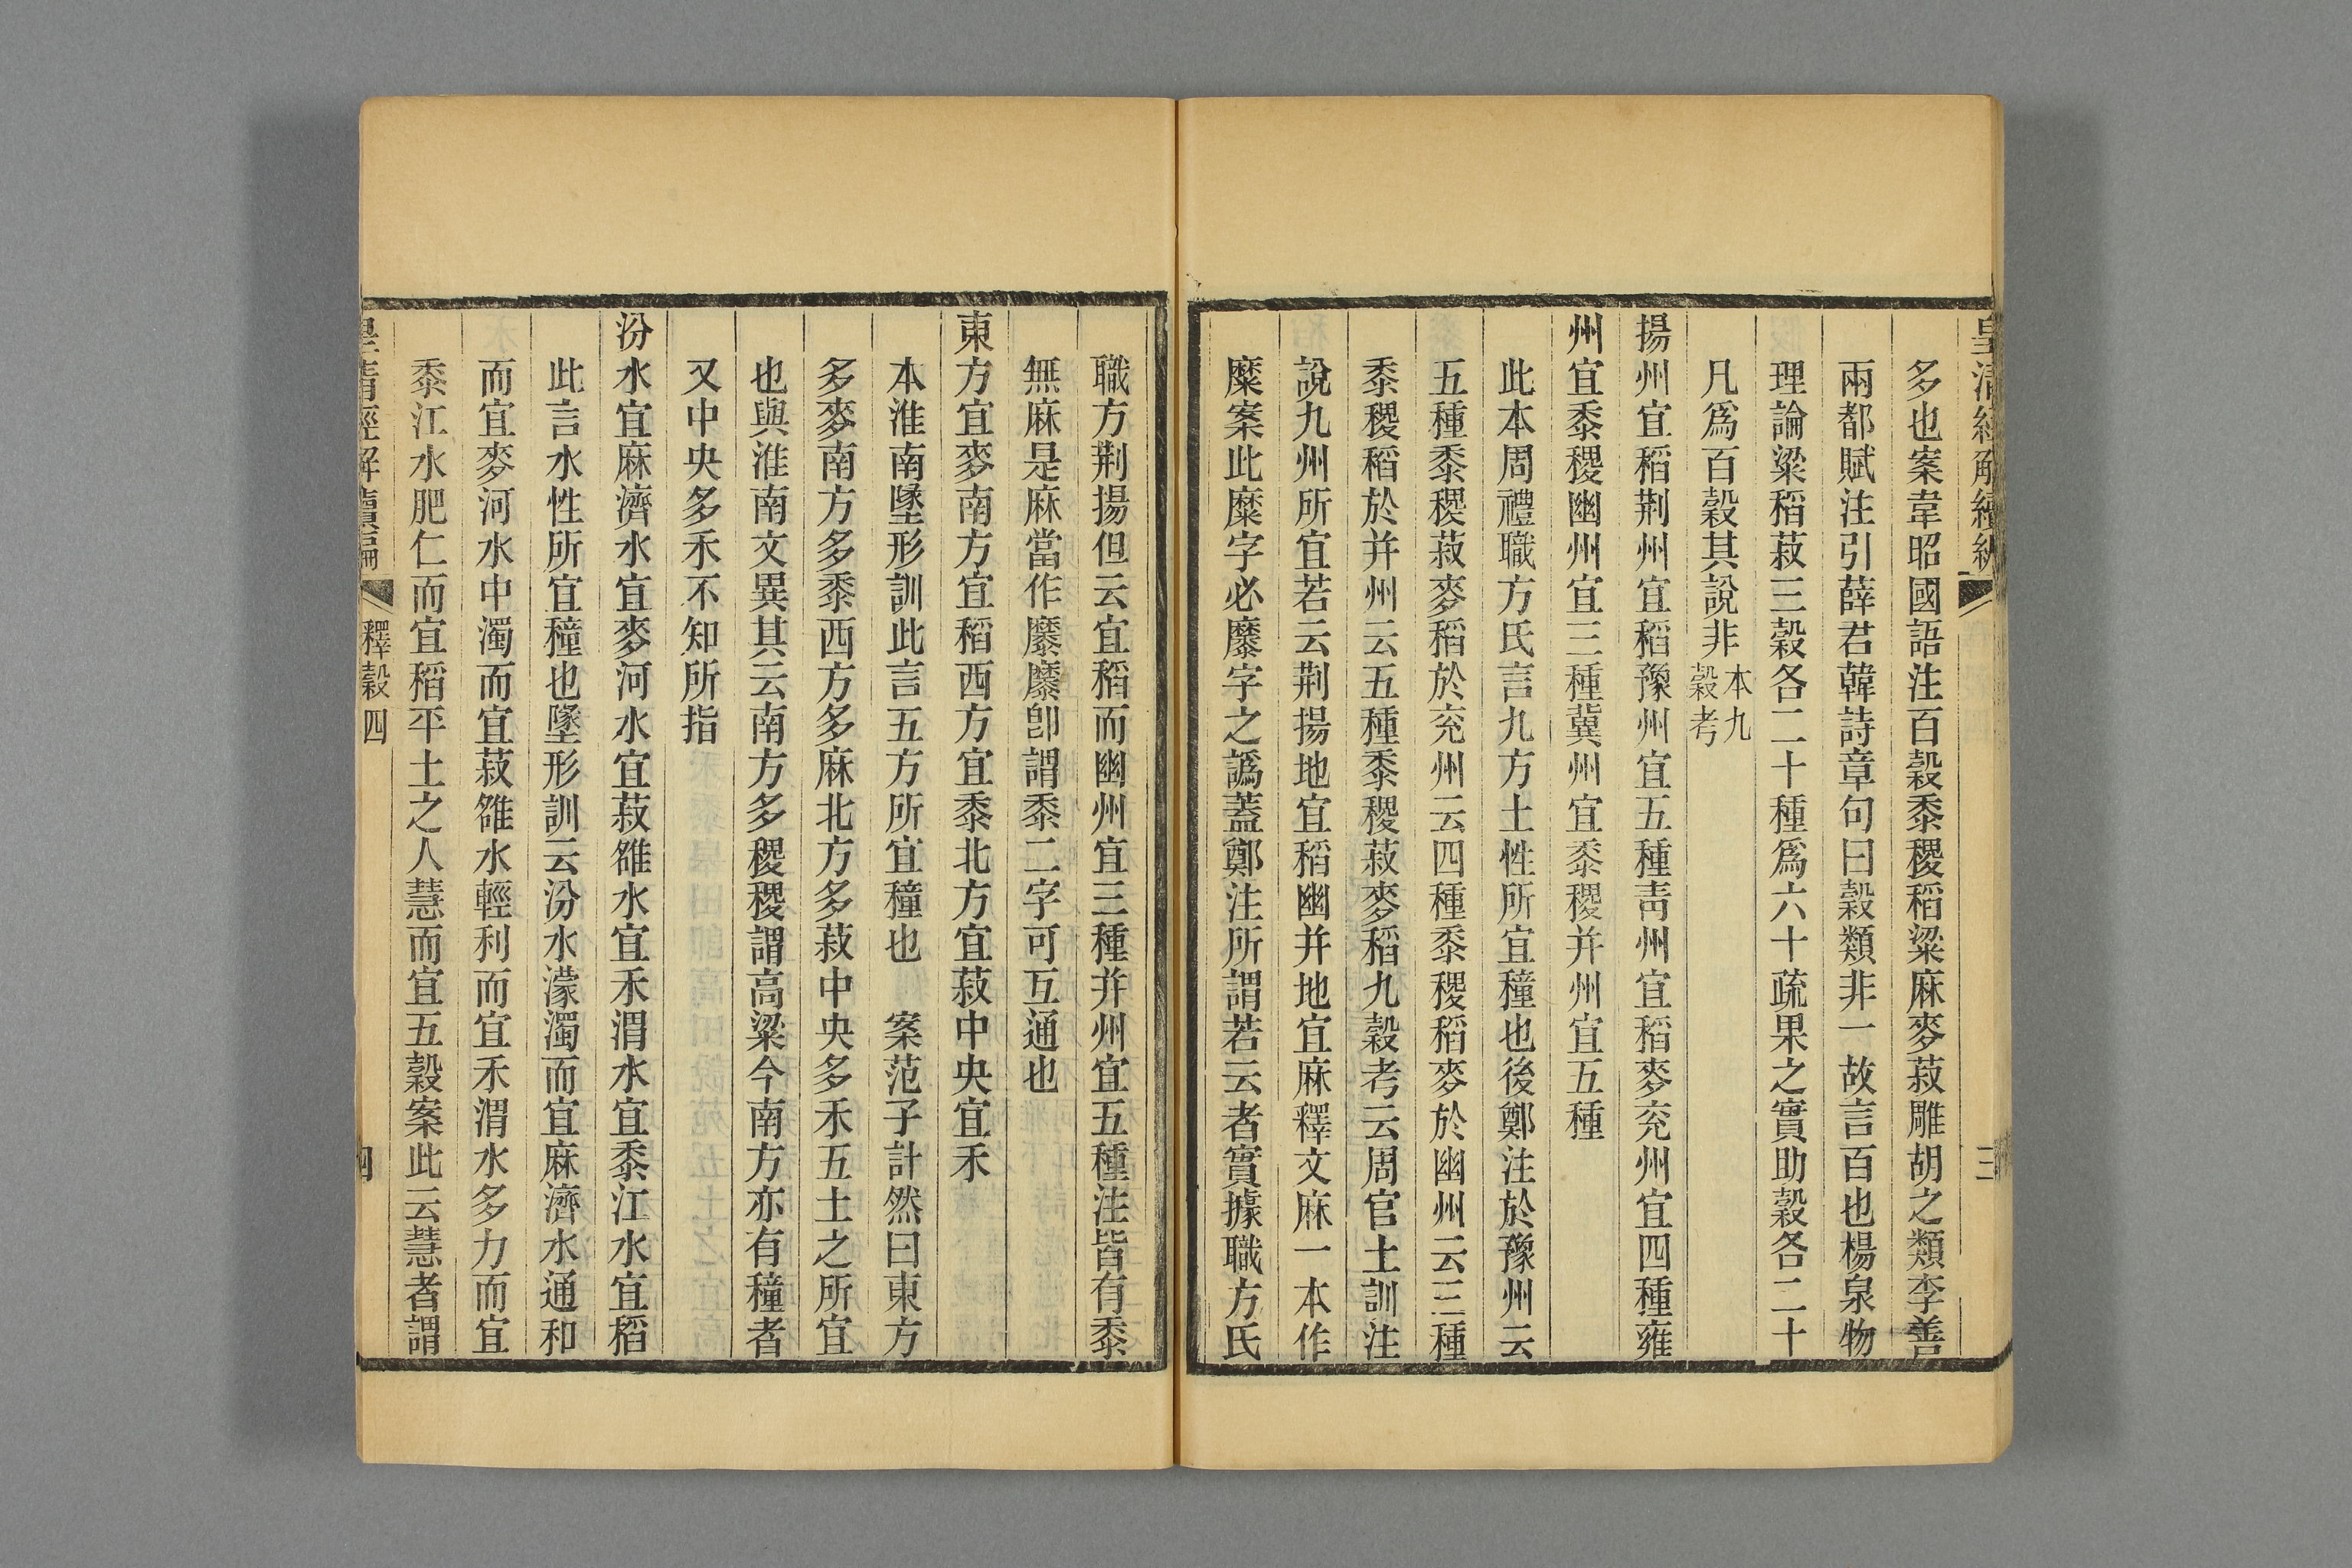 皇清經解續編
三
多也案韋昭國語注百穀黍稷稻粱麻麥菽雕胡之類李善
兩都賦注引薛君韓詩章句曰穀類非一故言百也楊泉物
理論粱稻菽三穀各二十種爲六十疏果之實助穀各二十
凡爲百穀其說非本九穀考
揚州宜稻荆州宜稻豫州宜五種靑州宜稻麥兖州宜四種雍
州宜黍稷幽州宜三種冀州宜黍稷并州宜五種
此本周禮職方氏言九方土性所宜穜也後鄭注於豫州云
五種黍稷菽麥稻於兖州云四種黍稷稻麥於幽州云三種
黍稷稻於并州云五種黍稷菽麥稻九穀考云周官土訓注
說九州所宜若云荆揚地宜稻幽并地宜麻釋文麻一本作
糜案此糜字必䵖字之譌蓋鄭注所謂若云者實據職方氏
職方荆揚但云宜稻而幽州宜三種并州宜五種注皆有黍
無麻是麻當作䵖䵖卽謂黍二字可互通也
東方宜麥南方宜稻西方宜黍北方宜菽中央宜禾
本淮南墬形訓此言五方所宜穜也　案范子計然曰東方
多麥南方多黍西方多麻北方多菽中央多禾五土之所宜
也與淮南文異其云南方多稷稷謂高粱今南方亦有穜者
又中央多禾不知所指
汾水宜麻濟水宜麥河水宜菽雒水宜禾渭水宜黍江水宜稻
此言水性所宜穜也墬形訓云汾水濛濁而宜麻濟水通和
而宜麥河水中濁而宜菽雒水輕利而宜禾渭水多力而宜
黍江水肥仁而宜稻平土之人慧而宜五穀案此云慧者謂
皇清經解續編
釋穀四
四